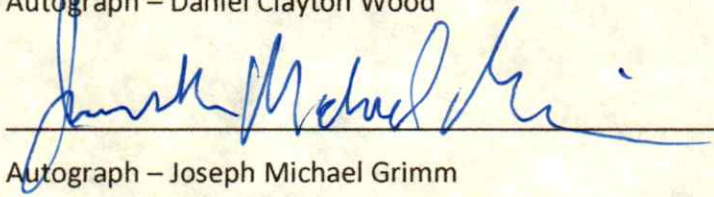 Autograph – Daniel Clayton Wood
Michael
Autograph – Joseph Michael Grimm